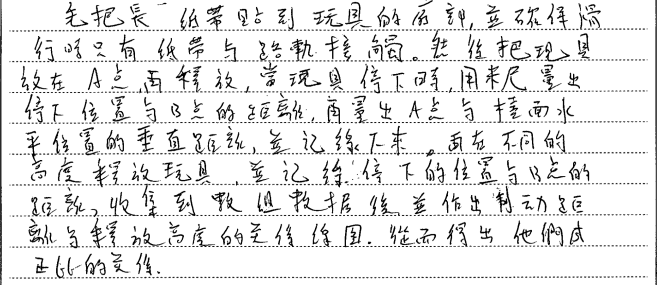 先把長紙帶貼到玩具的底部,並確保滑
行時只有紙帶與路軌接觸。然後把玩具
放在A点,再釋放,當玩具停下時,用米尺量出
停下位置与B点的距離,再量出A点与檯面水
平位置的垂直距離,並记錄下來。再在不同的
高度釋放玩具,並记錄停下的位置与B点的
距離。收集到數组數据後,並作出制动距
離与釋放高度的关係線图.從而得出他們成
正比的关係.